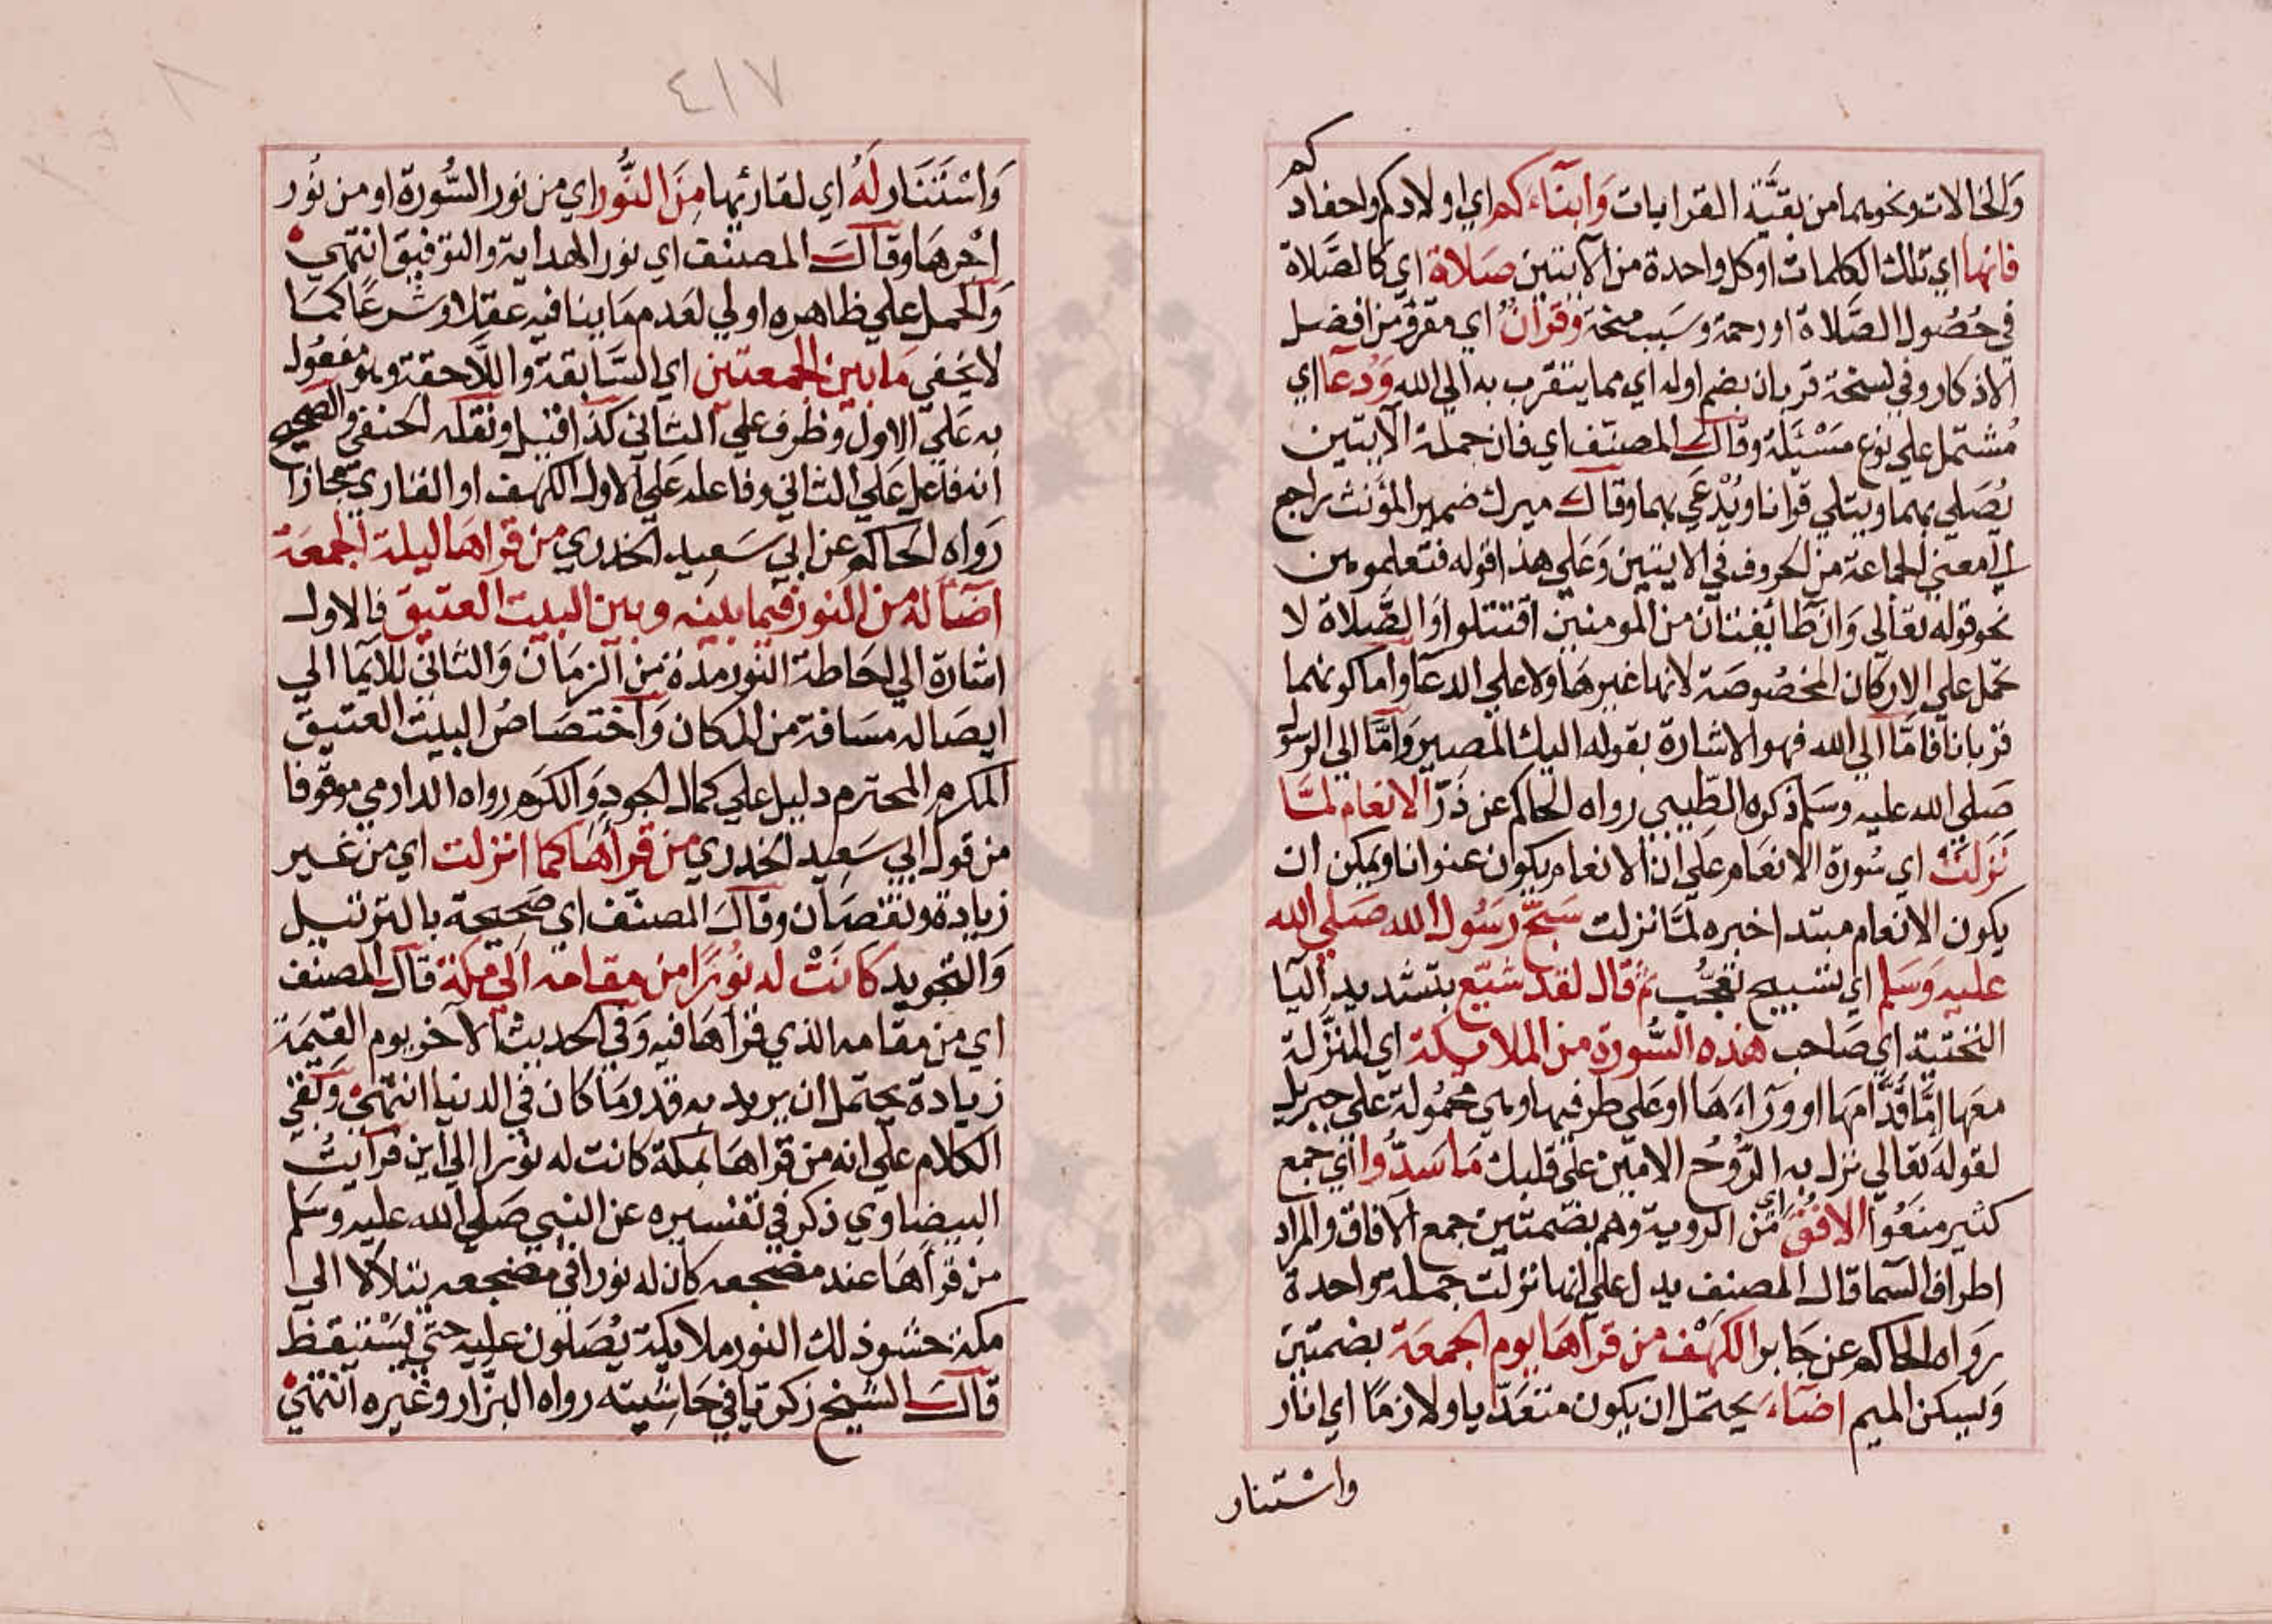 والخالات ونحوهما من بقية القرابات وَابنآءَكم اي اولادكم واحفادكم
فانها اي تلك الكلمات او كل واحدة من الآيتين صلاة اي كالصَّلاة
في حُصُول الصَّلاة او رحمة وسَبب منحة وَقرآنٌ اي مقرؤ من افضل
الاذكار وفي نسخة قربان بضم اوله اي مما يتقرب به الي الله وَدُعآ اي
مُشتمل علي نوع مسْئَلة وقال المصنف اي فان جملة الآيتين
يُصَلي بهما ويتلي قرانا ويُدْعَي بهما وقال ميرك ضمير المؤنث راجع
الي معني الجماعة من الحروف في الايتين وَعَلي هذا قوله فتعلموهن
نحو قوله تعالي وَان طآئفتان من المومنين اقتتلوا وَالصَّلاة لا
تحمل علي الاركان المخصُوصَة لانها غيرهَا ولا علي الدعآ واما كونهما
قربانا فامَّا الي الله فهو الاشارة بقوله اليك المصير وَامَّا الي الرسول
صَلي الله عليه وسَلم ذكره الطّيبي رواه الحاكم عن ذَرّ الانعام لمَّا
نَزلَتْ اي سُورة الانعَام علي ان الانعام يكون عنوانا ويمكن ان
يكون الانعام مبتدا خبره لمَّا نزلت سَبّح رسُول الله صَلي الله
عليه وَسَلم اي تسبيح تعجُّب ثم قال لقد شيّع بتشديد اليآ
التحتية اي صَاحب هذه السُّورة من الملايكة اي المنزَّلة
معَها امَّا قُدَّامهَا او ورآءَهَا او عَلي طرفيها وهي محمُولة علي جبريل
لقوله تعالي نزل به الرُّوحُ الامين علي قلبك مَا سَدُّوا اي جمع
كثير منعُوا الافُقَ اي من الروية وهم بضمتين جمع الآفاق والمراد
اطراف السمآ قال المصنف يدل علي انها نزلت جملة واحدة
رَوَاه الحاكم عن جَابر الكهْف من قرآهَا يوم الجمعَة بضمتين
وَيسكن الميم اضآءَ يحتمل ان يكون متعَدّيا ولازمًا اي انار
واسْتنار
٤١٧
٨
وَاسْتَنَار لَهُ اي لقارئها مِنَ النُّور اي من نور السُّورة او من نُور
اجرهَا وقال المصنف اي نور الهداية والتوفيق انتهي
وَالحمل علي ظاهره اولي لعَدم مَا ينافيه عقلا وشرعًا كمَا
لا يخفي مَا بين الجمعتين اي السَّابقة واللَّاحقة وهو مفعُول
به عَلي الاول وظرف علي الثاني كذا قيل ونقله الحنفي والصحيح
انه فاعل عَلي الثاني وفاعله عَلي الاول الكهف او القاري مجازا
رَواه الحَاكم عن ابي سَعِيد الخدري من قرآهَا ليلة الجمعَة
اضآ له من النور فيما بينه وبين البيت العتيق فالاول
اشارة الي احَاطة النور مدة من الزمَان وَالثاني للايمآ الي
ايصَاله مسَافة من المكان وَاختصَاصُ البيت العتيق
المكرم المحترم دليل علي كمال الجودِ وَالكَرَم رواه الدارمي موقوفا
من قول ابي سَعِيد الخدري من قرأهَا كما انزلت اي من غير
زيادة ونقصَان وقال المصنف اي صَحيحة بالترتيل
وَالتجويد كَانَتْ له نُورًا من مقامه الي مكة قال المصنف
اي من مقامه الذي قرأهَا فيه وَفي الحديث الآخر يوم القِيمَة
زيادة يحتمل ان يريد به قدر مَا كان في الدنيا انتهي وَبَقي
الكلام علي انه من قرآهَا بمكة كانت له نورا الي اين فرآيتُ
البيضاوي ذكر في تفسيره عن النبي صَلي الله عليه وسَلم
من قرأهَا عند مضجعه كان له نورا في مضجعه يتلألأ الي
مكة حشو ذلك النور ملايكة يُصَلون عليه حتي يَسْتيقظ
قال الشيخ زكريا في حَاشيته رواه البزّار وغيره انتهي